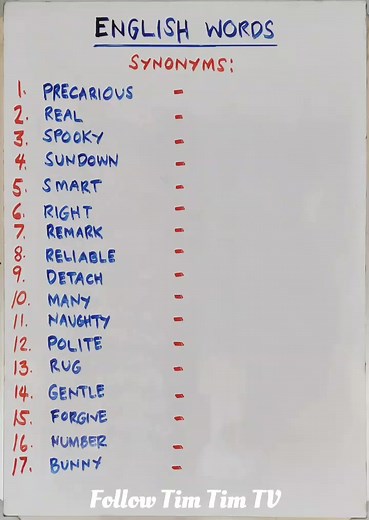 ENGLISH WORDS
SYNONYMS:
1. PRECARIOUS -
2. REAL -
3. SPOOKY -
4. SUNDOWN -
5. SMART -
6. RIGHT -
7. REMARK -
8. RELIABLE -
9. DETACH -
10. MANY -
11. NAUGHTY -
12. POLITE -
13. RUG -
14. GENTLE -
15. FORGIVE -
16. NUMBER -
17. BUNNY -
Follow Tim Tim TV